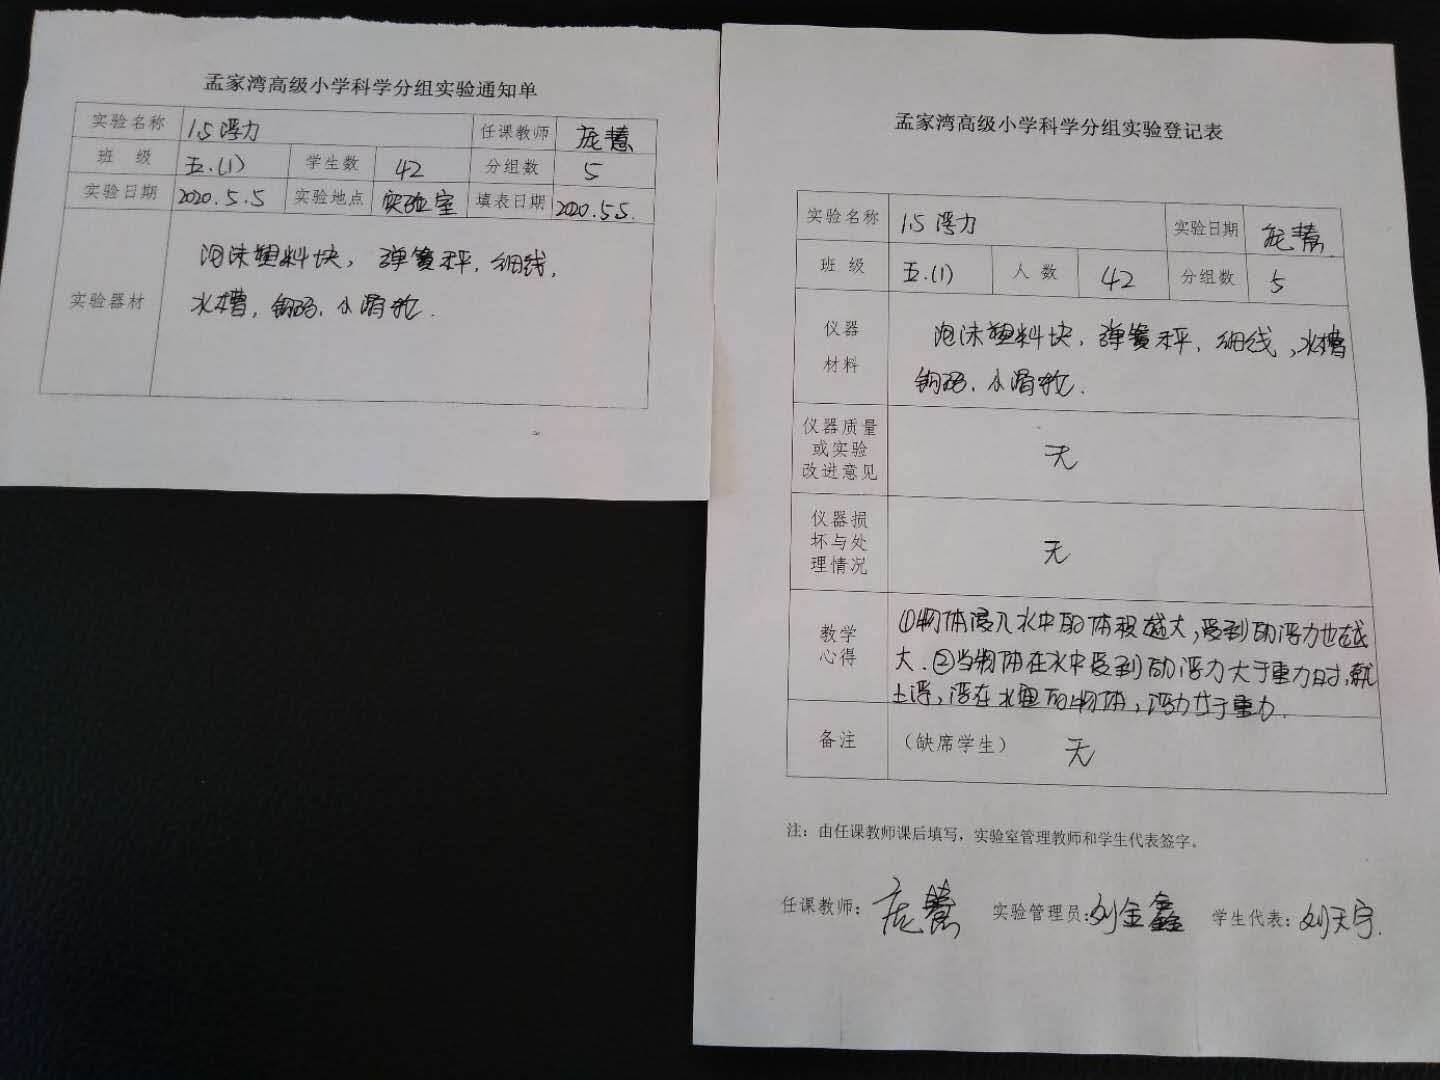 孟家湾高级小学科学分组实验通知单
实验名称 1.5 浮力 任课教师 庞慧
班 级 五.(1) 学生数 42 分组数 5
实验日期 2020.5.5 实验地点 实验室 填表日期 2020.5.5.
实验器材
泡沫塑料块，弹簧秤，细线，
水槽，钩码，小滑轮.
孟家湾高级小学科学分组实验登记表
实验名称 1.5 浮力 实验日期 庞慧
班 级 五.(1) 人 数 42 分组数 5
仪器
材料
泡沫塑料块，弹簧秤，细线，水槽
钩码，小滑轮.
仪器质量
或实验
改进意见
无
仪器损
坏与处
理情况
无
教学
心得
①物体浸入水中的体积越大，受到的浮力也越
大.②当物体在水中受到的浮力大于重力时，就
上浮，浮在水面的物体，浮力等于重力.
备注 （缺席学生） 无
注：由任课教师课后填写，实验室管理教师和学生代表签字。
任课教师：庞慧 实验管理员：刘金鑫 学生代表：刘天宇.